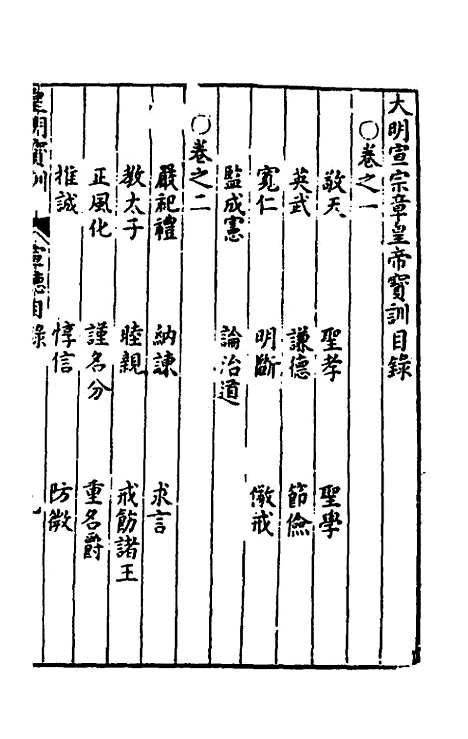 大明宣宗章皇帝寳訓目錄
○卷之一
敬天 聖孝 聖學
英武 謙德 節儉
寬仁 明斷 儆戒
監成憲 論治道
○卷之二
嚴祀禮 納諫 求言
教太子 睦親 戒飭諸王
正風化 謹名分 重名爵
推誠 惇信 防微
皇明寳訓 宣德目錄